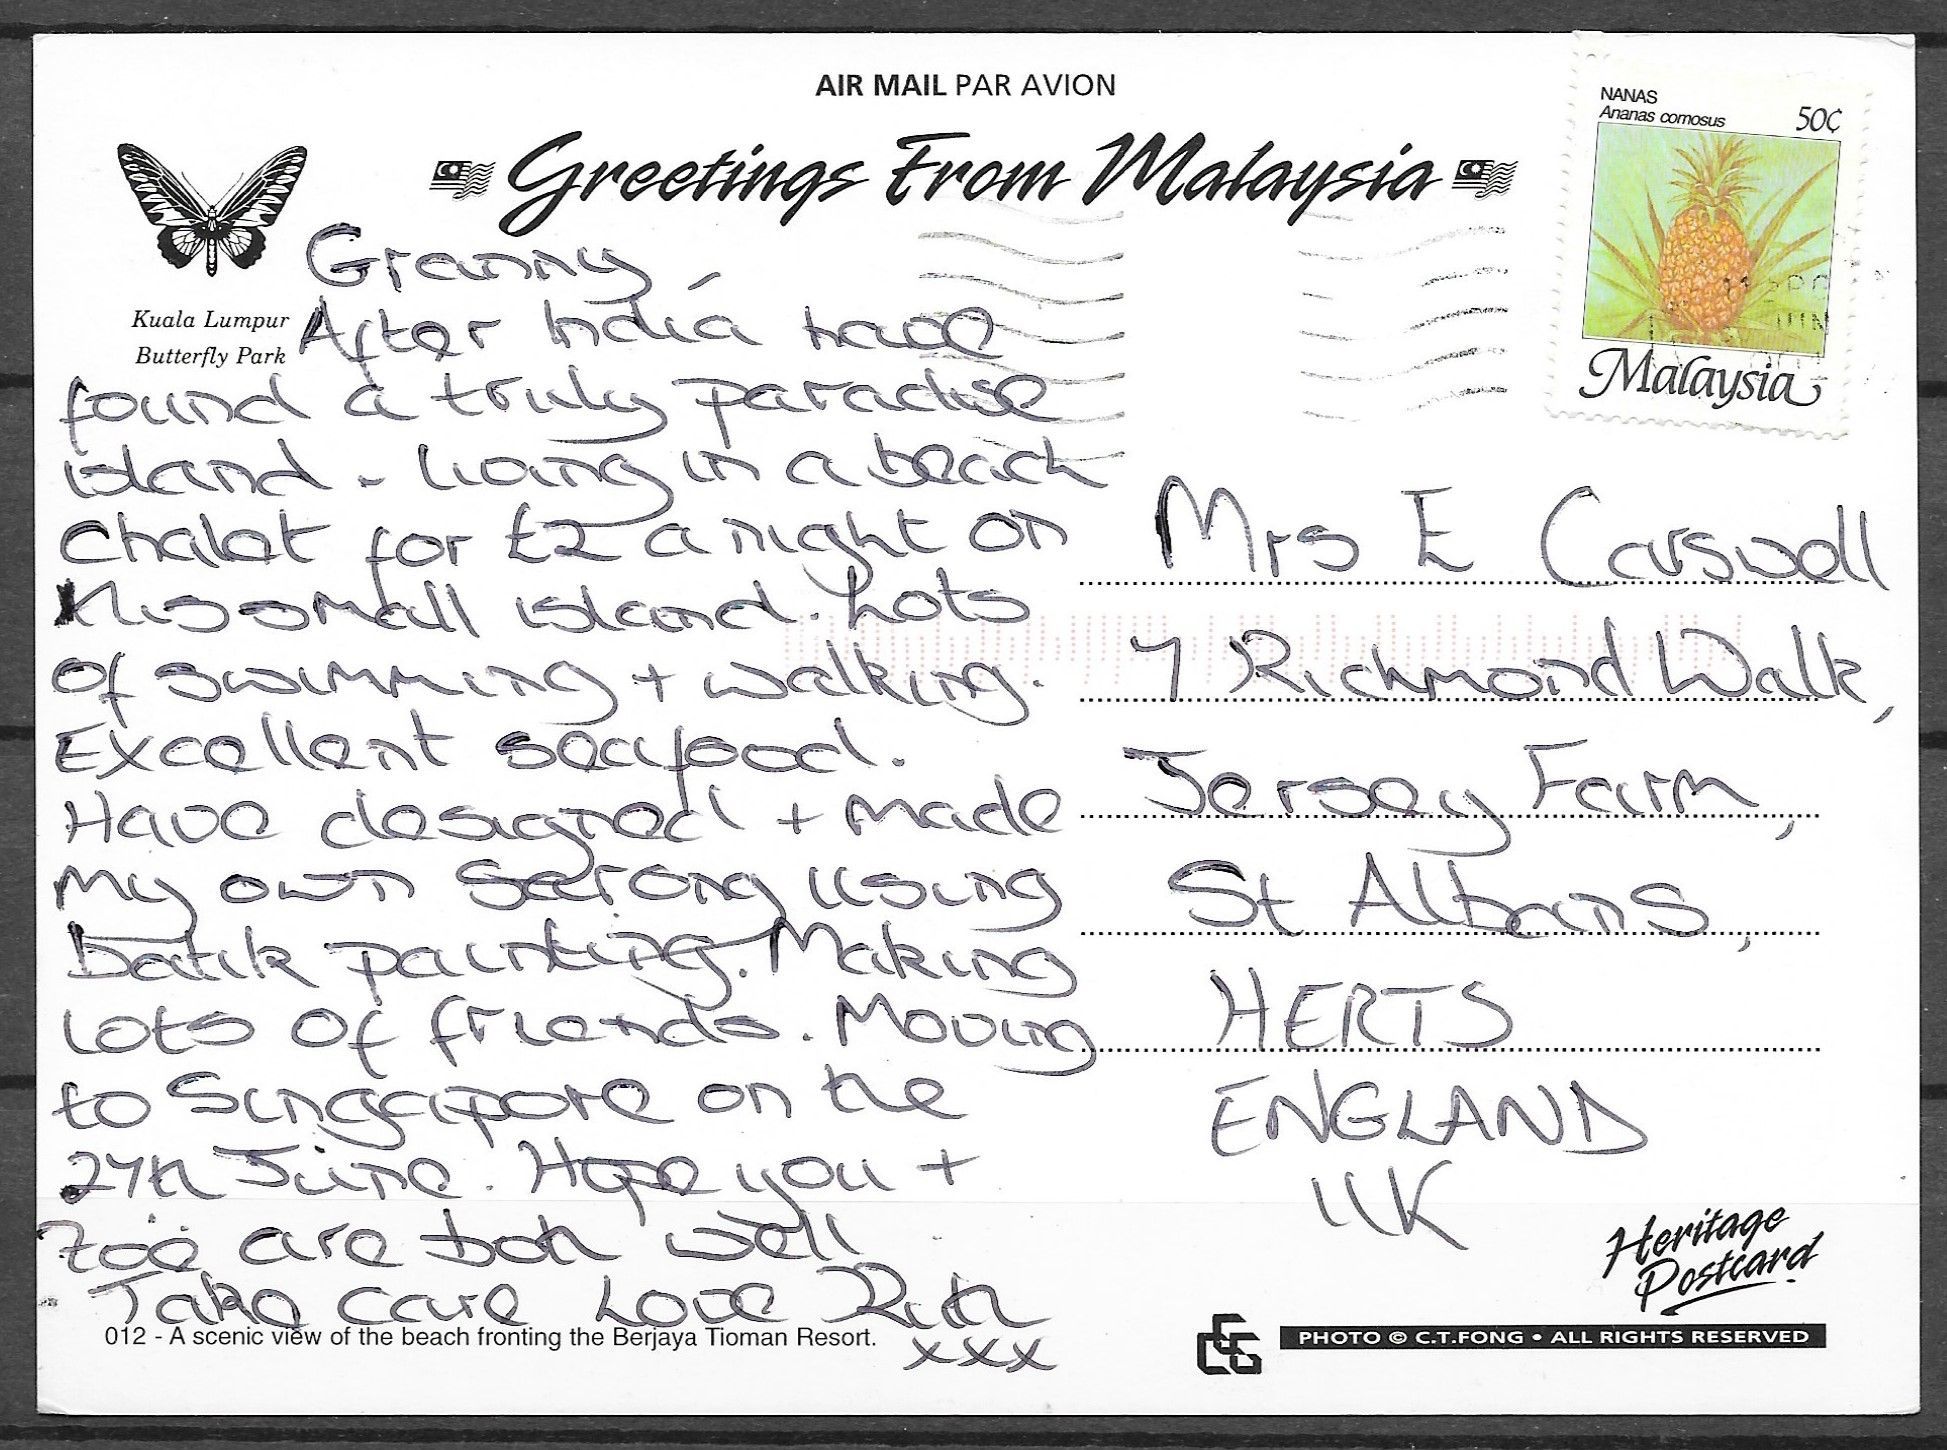 AIR MAIL PAR AVION
Greetings From Malaysia
NANAS
Ananas comosus
50¢
Malaysia
Kuala Lumpur
Butterfly Park
Granny,
After India have
found a truly paradise
island - living in a beach
chalet for £2 a night on
this small island. Lots
of swimming + walking.
Excellent seafood.
Have designed + made
my own sarong using
batik painting. Making
lots of friends. Moving
to Singapore on the
24th June. Hope you +
Zoë are both well
Take care Love Ruth
xxx
Mrs E Carswell
7 Richmond Walk,
Jersey Farm,
St Albans,
HERTS
ENGLAND
UK
Heritage
Postcard
012 - A scenic view of the beach fronting the Berjaya Tioman Resort.
PHOTO © C.T.FONG • ALL RIGHTS RESERVED